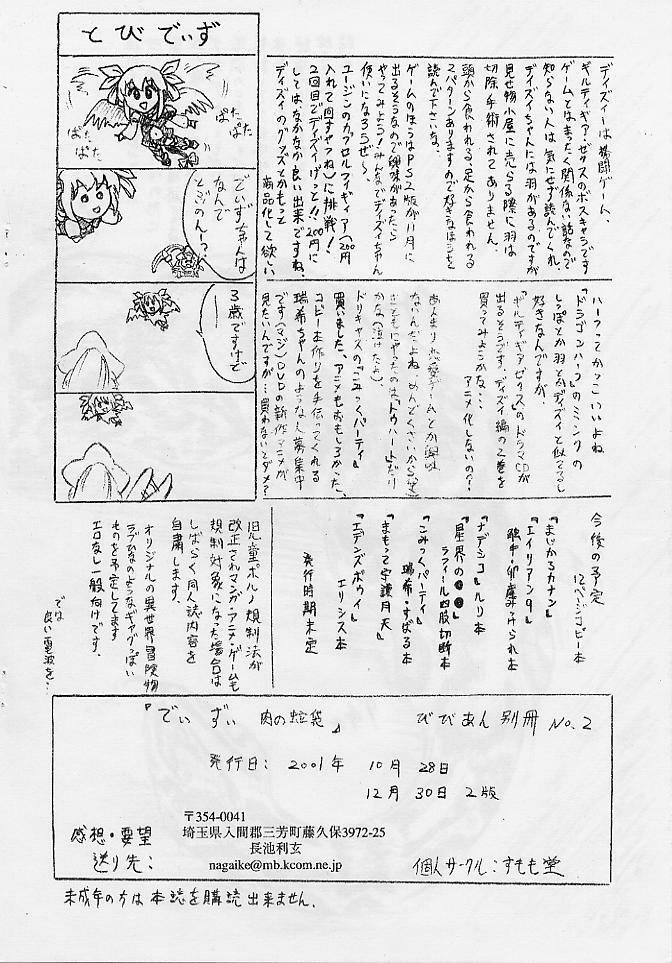 とびでぃず
ぱたぱた
ぱたぱた
でぃずちゃんは
なんで
とぶのん~?
3歳ですけど
ディズィーは格闘ゲーム、
ギルティギア・ゼクスのボスキャラです
ゲームとはまったく関係ない話なので
知らない人は気にせず読んでくれ
ディズィちゃんには羽があるのですが
見せ物小屋に売られる際に羽は
切除手術されてありません。
頭から食われる、足から食われる
2パターンありますので好きなほうを
読んで下さいな。
ゲームのほうはPS2版が11月に
出るそうなので興味があったら
やってみよう!みんなでディズィちゃん
使いになろうぜ~
ユージンのカプセルフィギィア(200円
入れて回すやつね)に挑戦!
2回目でディズィげっと!!200円に
してはなかなか良い出来ですね。
ディズィのグッズとかもっと
商品化して欲しい。
ハーフってかっこいいよね
『ドラゴンハーフ』のミンクの
しっぽとか羽とかディズィと似てるし
好きなんですが、
『ギルティギアゼクス』のドラマCDが
出るそうです、ディズィ編の2巻を
買ってみようかな・・・
アニメ化しないの?
あんまり恋愛ゲームとか興味
ないんだよね、めんどくさいから
まともにやったのはトゥハートだけ
かな(泣けたよ)
ドリキャスの『こみっくパーティ』
買いました、アニメもおもしろかった。
コピー本作りを手伝ってくれる
瑞希ちゃんのような人募集中
です(マジ)DVDの新作アニメが
見たいんですが…買わないとダメ?
今後の予定
12ページコピー本
『まじかるカナン』
『エイリアン9』
触手・卵産みつけられ本
『ナデシコ』ルリ本
『星界の●●』
ラフィール四肢切断本
『こみっくパーティ』
瑞希・すばる本
『まもって守護月天』
『エデンズボゥイ』
エリシス本
発行時期未定
児童ポルノ規制法が
改正されマンガ・アニメ・ゲームも
規制対象になった場合は
しばらく同人誌内容を
自粛します。
オリジナルの異世界冒険物
ラブひなのようなギャグっぽい
ものを予定してます
エロなし一般向けです。
では
良い電波を…
『でぃずぃ 肉の 袋』 びびあん 別冊 No.2
発行日: 2001年 10月 28日
12月 30日 2版
〒354-0041
埼玉県入間郡三芳町藤久保3972-25
長池利玄
nagaike@mb.kcom.ne.jp
感想・要望
送り先:
個人サークル:すもも堂
未成年の方は本誌を購読出来ません.